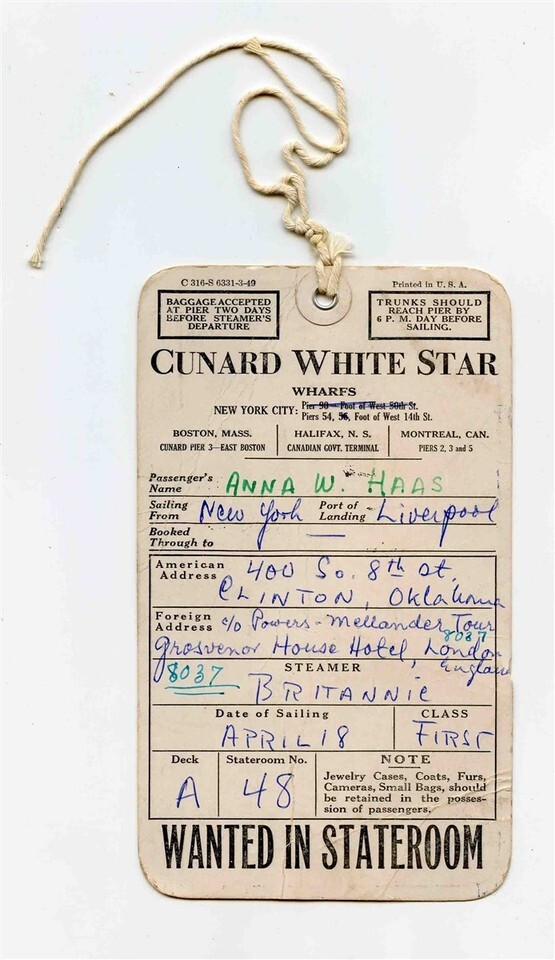 C 316-S 6331-3-49 Printed in U. S. A.
BAGGAGE ACCEPTED
AT PIER TWO DAYS
BEFORE STEAMER'S
DEPARTURE
TRUNKS SHOULD
REACH PIER BY
6 P. M. DAY BEFORE
SAILING.
CUNARD WHITE STAR
WHARFS
NEW YORK CITY: Pier 90 - Foot of West 50th St.
Piers 54, 56, Foot of West 14th St.
BOSTON, MASS.
CUNARD PIER 3—EAST BOSTON
HALIFAX, N. S.
CANADIAN GOVT. TERMINAL
MONTREAL, CAN.
PIERS 2, 3 and 5
Passenger's
Name ANNA W. HAAS
Sailing
From New York Port of
Landing Liverpool
Booked
Through to —
American
Address 400 So. 8th St.
CLINTON, Oklahoma
Foreign
Address c/o Powers-Mellander Tour
8037
Grosvenor House Hotel, London
England
8037
STEAMER
BRITANNIC
Date of Sailing
APRIL 18
CLASS
FIRST
Deck
A
Stateroom No.
48
NOTE
Jewelry Cases, Coats, Furs,
Cameras, Small Bags, should
be retained in the posses-
sion of passengers.
WANTED IN STATEROOM